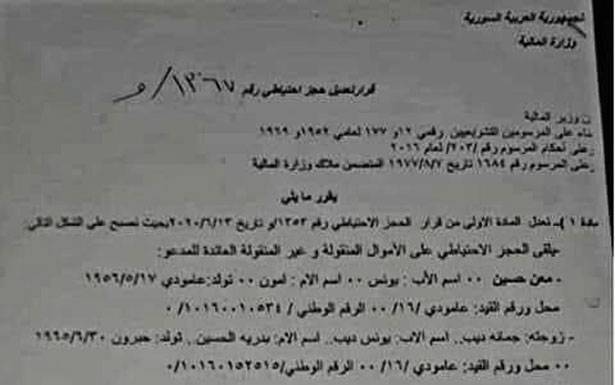 الجمهورية العربية السورية
وزارة المالية
قرار تعديل حجز احتياطي رقم ١٣٠٦٧/و
ن وزير المالية
ناء على المرسومين التشريعيين رقمي ١٢و ١٧٧ لعامي ١٩٥٢و ١٩٦٩
وعلى أحكام المرسوم رقم /٢٠٣/ لعام ٢٠١٦
وعلى المرسوم رقم ١٦٨٤ تاريخ ١٩٧٧/٨/٧ المتضمن ملاك وزارة المالية
يقرر ما يلي
مادة ١)ـ تعدل المادة الاولى من قرار الحجز الاحتياطي رقم ١٣٥٣/و تاريخ ٢٠٢٠/٦/١٣ بحيث تصبح على الشكل التالي:
-يلقى الحجز الاحتياطي على الأموال المنقولة و غير المنقولة العائدة للمدعو:
- معن حسين ٠٠ اسم الأب : يونس ٠٠ اسم الام : امون ٠٠ تولد:عامودي ١٩٥٦/٥/١٧
محل ورقم القيد: عامودي /١٦/ ٠٠ الرقم الوطني / ١٠١٦٠٠١٠٥٣٤/ ٠
- زوجته: جمانه ديب.. اسم الاب: يونس ديب.. اسم الام: بدريه الحسين , تولد: جبرون ١٩٦٥/٦/٣٠
٠٠ محل ورقم القيد: عامودي /١٦/ ٠٠ الرقم الوطني/١٠١٦٠١٥٢٥١٥/٠